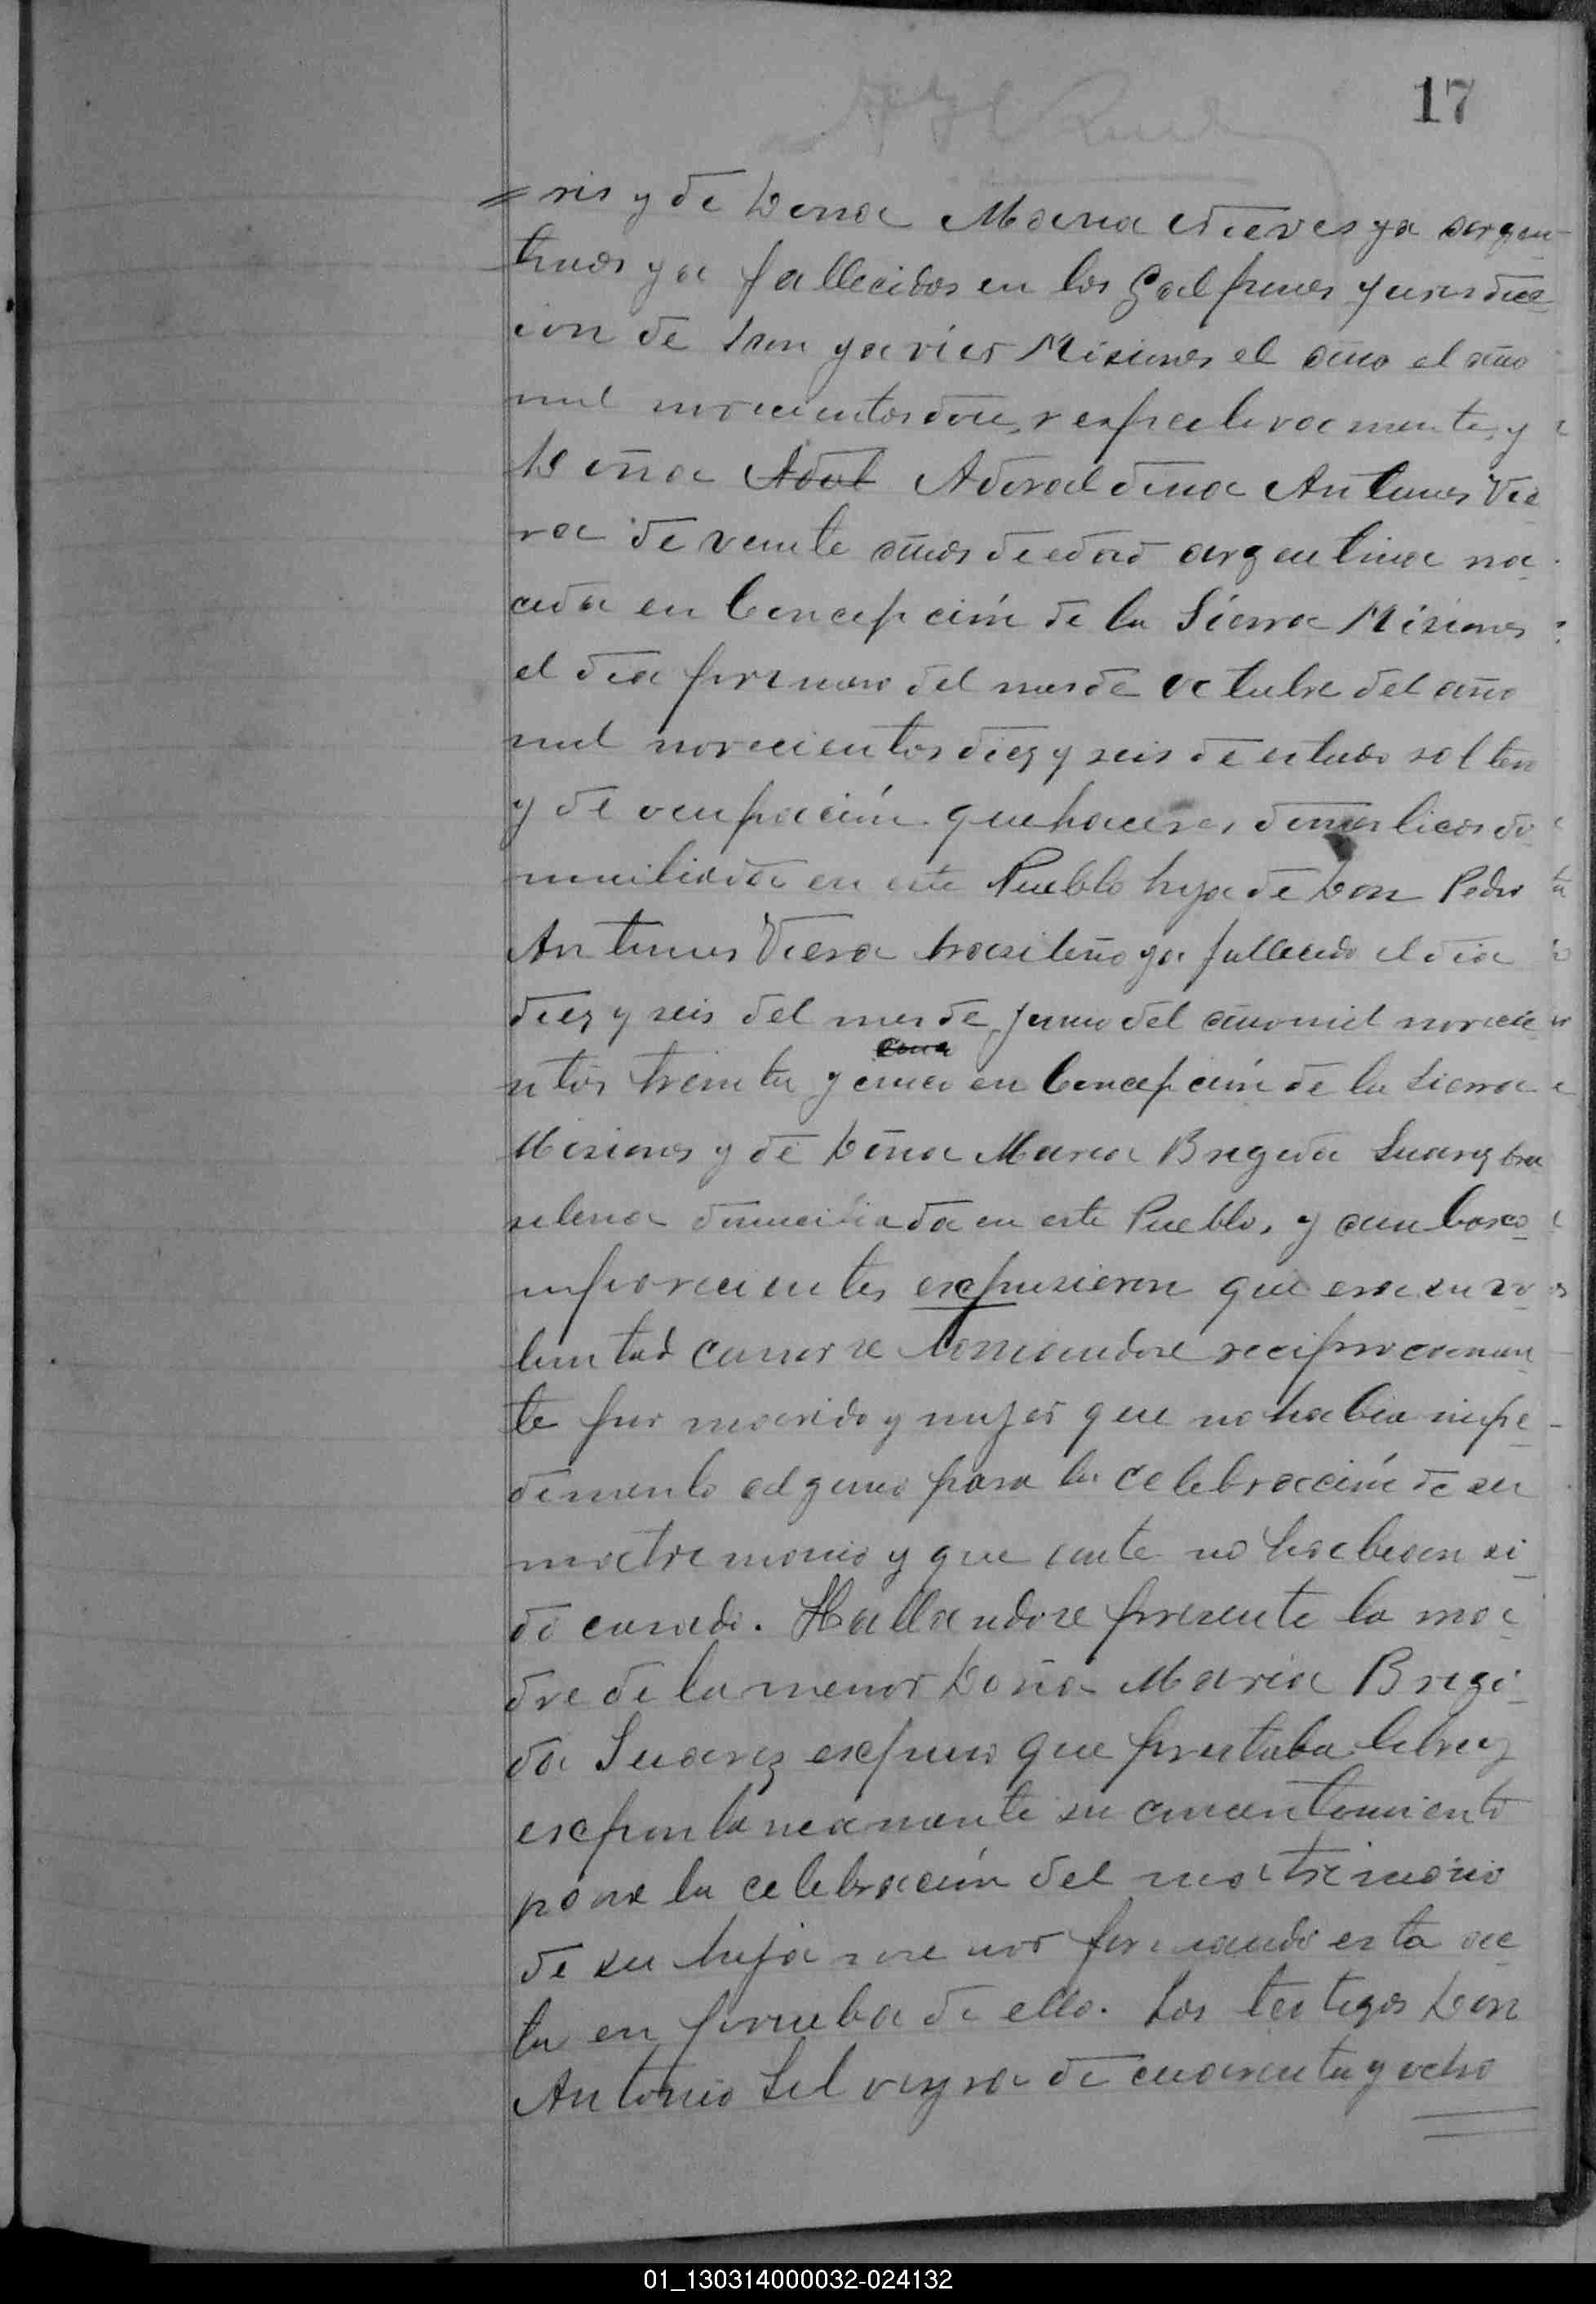 17
= ris y de Dona Maria Nieves ya argen-
tinos ya fallecidos en los Galpones Jurisdic
cion de San Javier Misiones el año el año
mil novecientos doce, respectivamente, y
Doña Adol Adoraldina Antunes Vie
ra de veinte años de edad argentina na
cida en Concepción de la Sierra Misiones
el dia primero del mes de Octubre del año
mil novecientos diez y seis de estado soltera
y de ocupación quehaceres domesticos do
miciliada en este Pueblo hija de Don Pedro
Antunes Viera brasileño ya fallecido el dia
diez y seis del mes de Junio del año mil novecie
ntos treinta y cinco en Concepción de la Sierra
Misiones y de Doña Maria Brigida Suarez bra
silena domiciliada en este Pueblo, y ambos co
mparecientes expusieron que era su vo
luntad casarse tomandose reciprocamen
te por marido y mujer que no habia impe
dimento alguno para la celebración de su
matrimonio y que ante no habian si
do casado. Hallandose presente la ma
dre de la menor Doña Maria Brigi
da Suarez expuso que prestaba libre y
expontaneamente su consentimiento
para la celebración del matrimonio
de su hija menor firmando esta ac
ta en prueba de ello. Los testigos Don
Antonio Silveyra de cuarenta y ocho
01_130314000032-024132